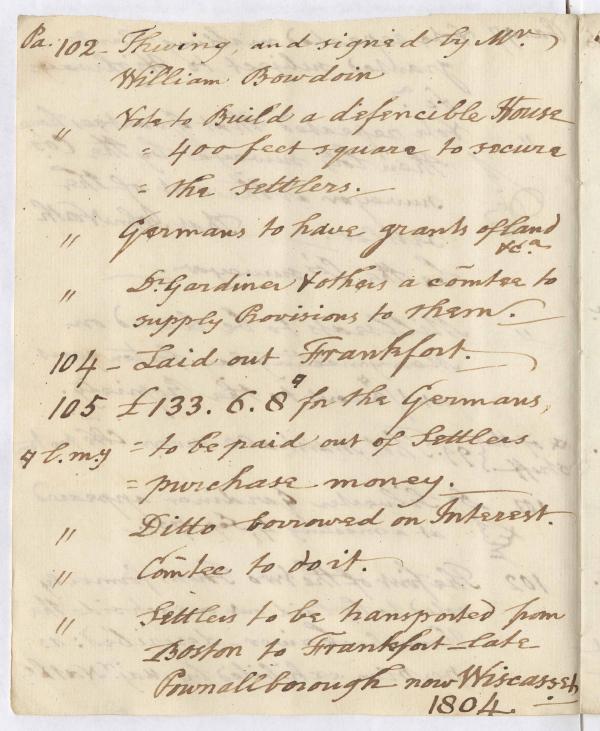 Pa. 102 - Thwing, and signed by Mr.
William Bowdoin
" Vote to Build a defencible House
= 400 feet square to secure
= the settlers.
" Germans to have grants of land
&ca.
" Dr. Gardiner & others a comtee to
supply Provisions to them.
104 - Laid out Frankfort.
105 £133. 6. 8 for the Germans,
l. m.y = to be paid out of Settlers
= purchase money.
" Ditto borrowed on Interest.
" Comtee to do it.
" Settlers to be transported from
Boston to Frankfort - late
Pownallborough now Wiscasset
1804.